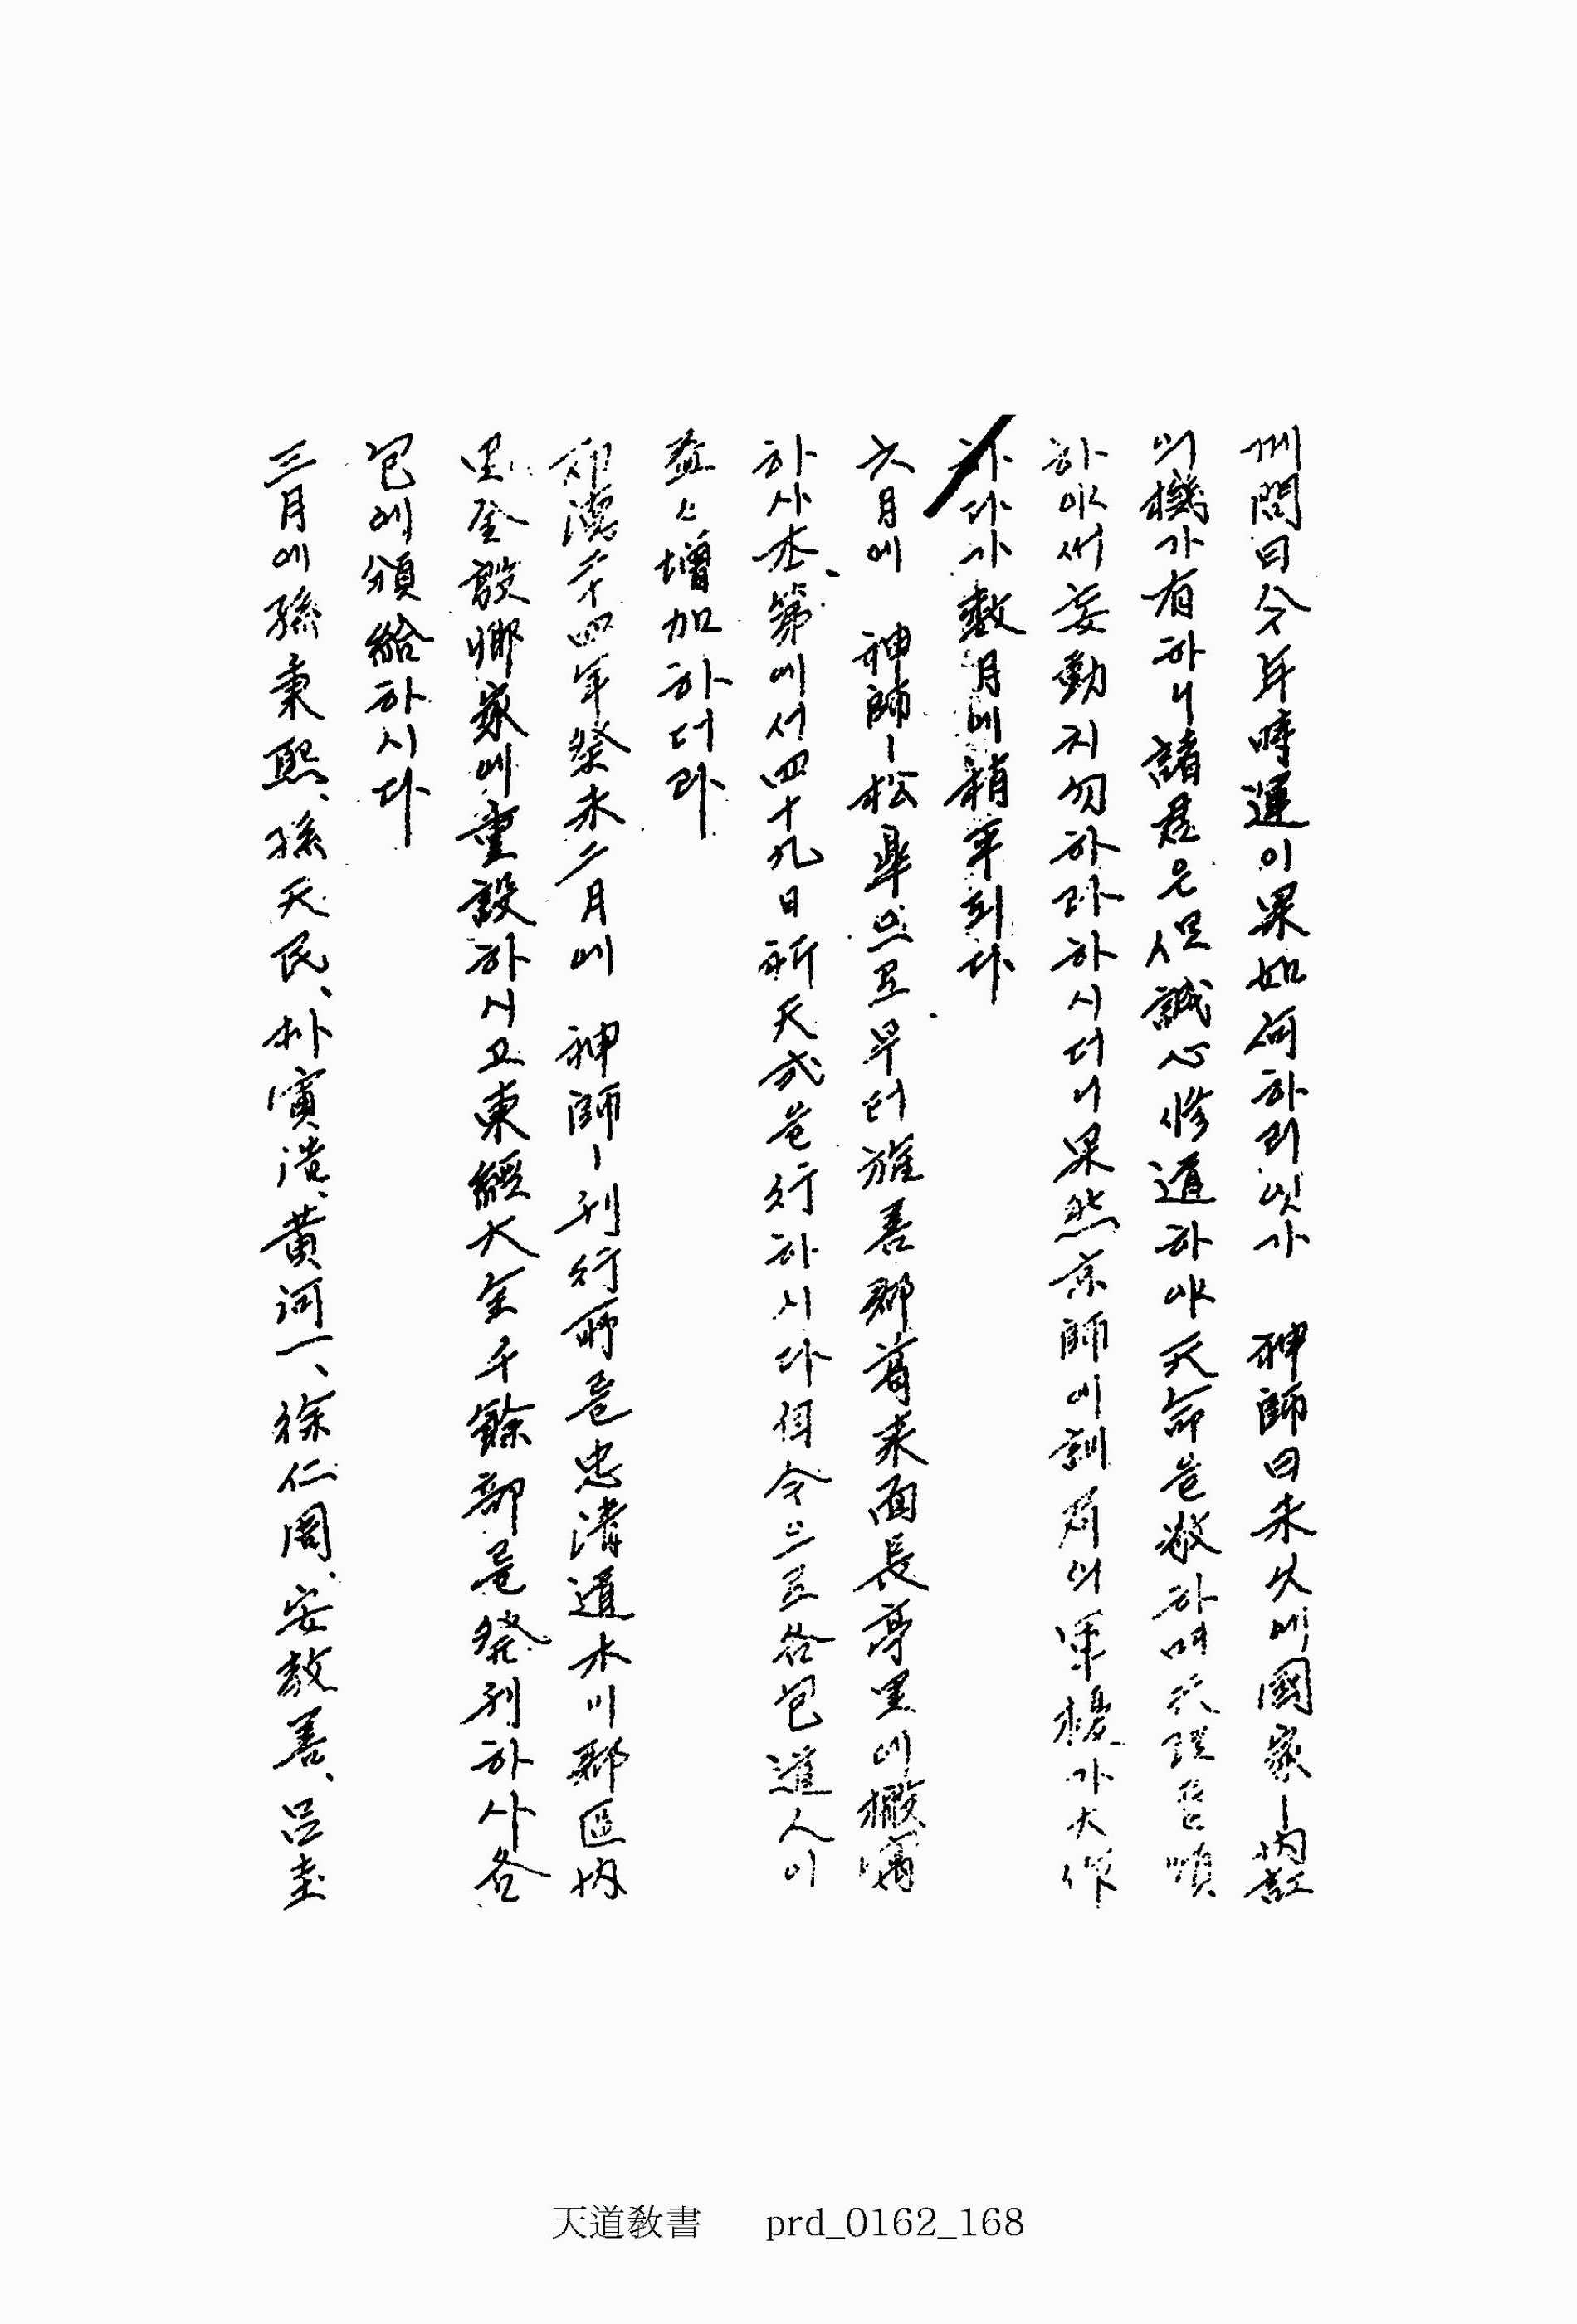 께問曰今年時運이果如何하리잇가 神師曰未久에國家ㅣ內訌
의機가有하니諸君은但誠心修道하야天命을敬하며天理를順
하야써妄動치勿하라하시더니果然京師에訓局의軍擾가大作
하다가數月에稍平되다
六月에 神師ㅣ松皐으로부터旌善郡葛来面長亭里에搬寓
하사本第에서四十九日祈天式을行하시다伊今으로各包道人이
益々增加하더라
布德二十四年癸未二月에 神師ㅣ刊行所를忠清道木川郡區內
里金殷卿家에重設하시고東經大全千餘部를発刊하사各
包에頒給하시다
三月에孫秉熙、孫天民、朴寅浩、黄河一、徐仁周、安教善、呂圭
天道敎書 prd_0162_168